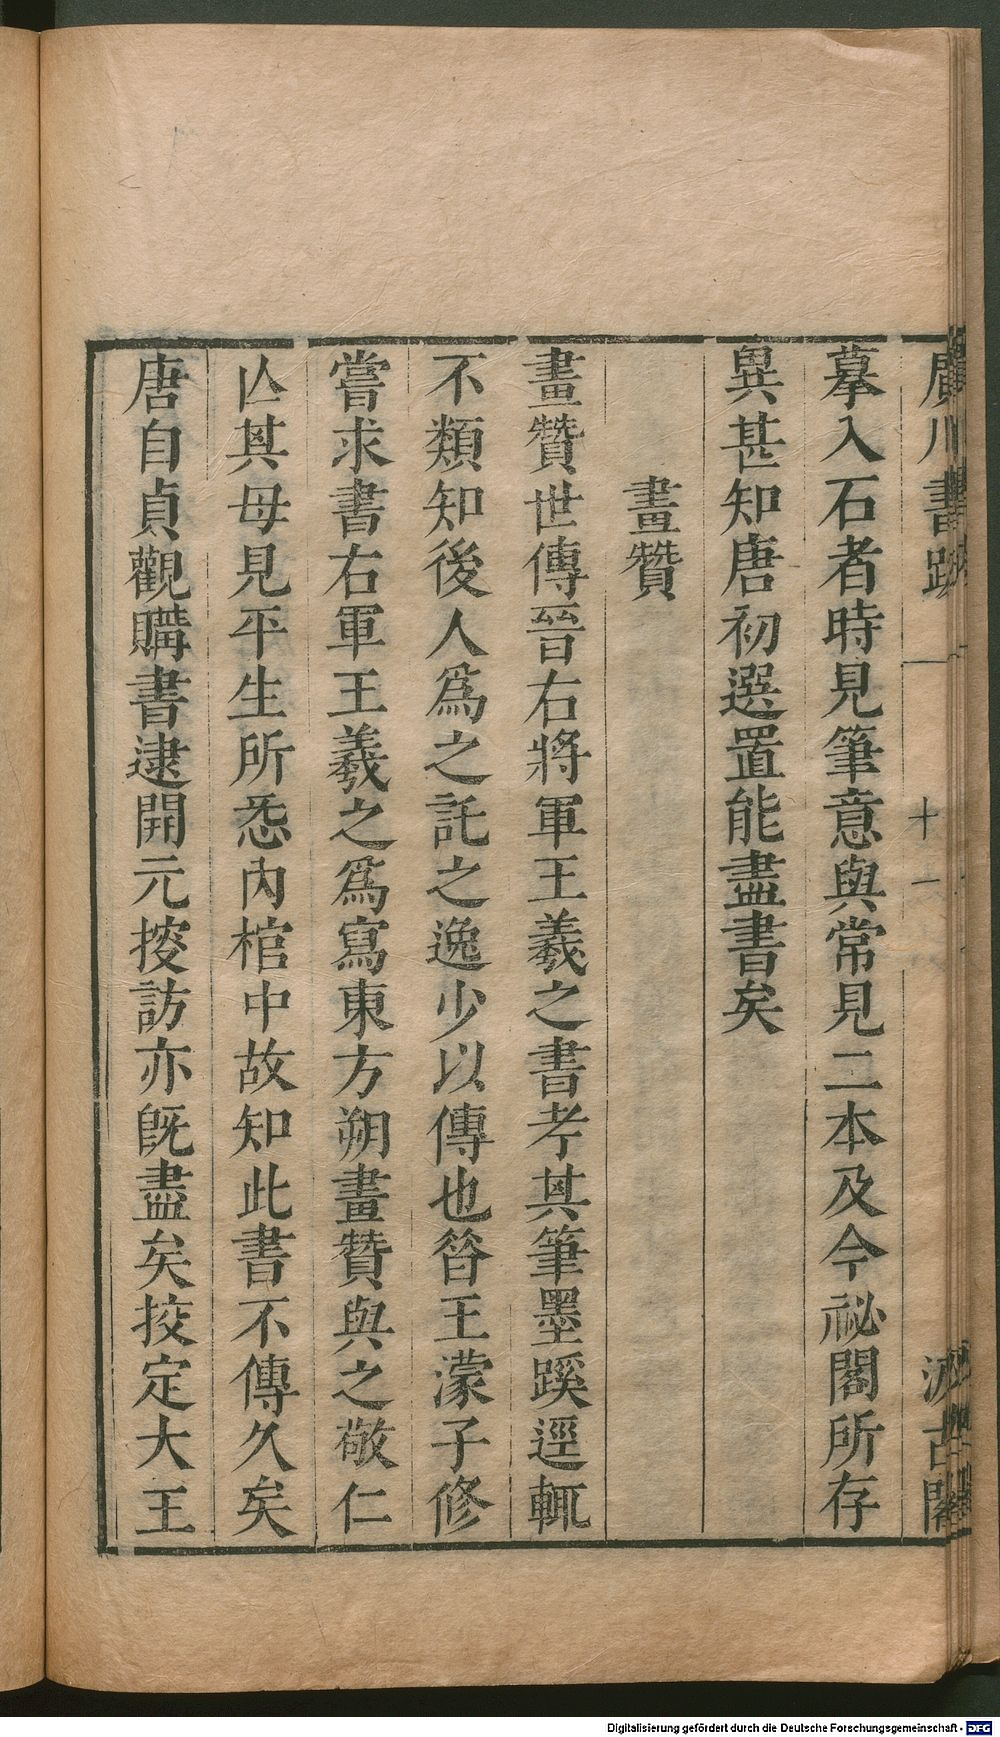 廣川書跋 十一 汲古閣
摹入石者時見筆意與常見二本及今祕閣所存
異甚知唐初選置能盡書矣
畫贊
畫贊世傳晉右將軍王羲之書考其筆墨蹊逕輒
不類知後人爲之託之逸少以傳也昝王濛子修
嘗求書右軍王羲之爲寫東方朔畫贊與之敬仁
亾其母見平生所悉內棺中故知此書不傳久矣
唐自貞觀購書逮開元搜訪亦旣盡矣挍定大王
Digitalisierung gefördert durch die Deutsche Forschungsgemeinschaft - DFG